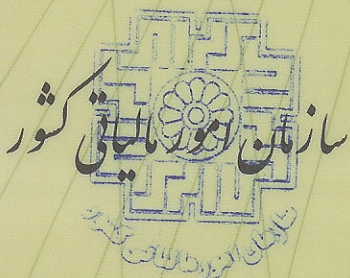 سازمان امور مالیاتی کشور
سازمان امور مالیاتی کشور